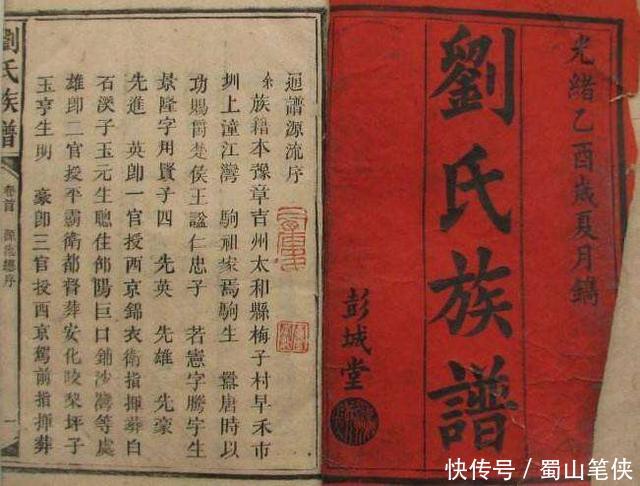 光緒乙酉歲夏月鐫
劉氏族譜
彭城堂
通譜源流序
余族籍本豫章吉州太和縣梅子村早禾市
圳上潼江灣 駒祖家焉駒生 嚚唐時以
功賜爵楚侯王諡仁忠子 若憲字騰宇生
景隆字用賢子四 先英 先雄 先豪
先進 英卽一官授西京錦衣衛指揮葬白
石溪子玉元生聰住邵陽巨口鋪沙灣等處
雄卽二官授平霸衛都督葬安化咬栗坪子
玉亨生明 豪卽三官授西京駕前指揮葬
劉氏族譜
卷首
源流總序
一
快传号／蜀山笔侠